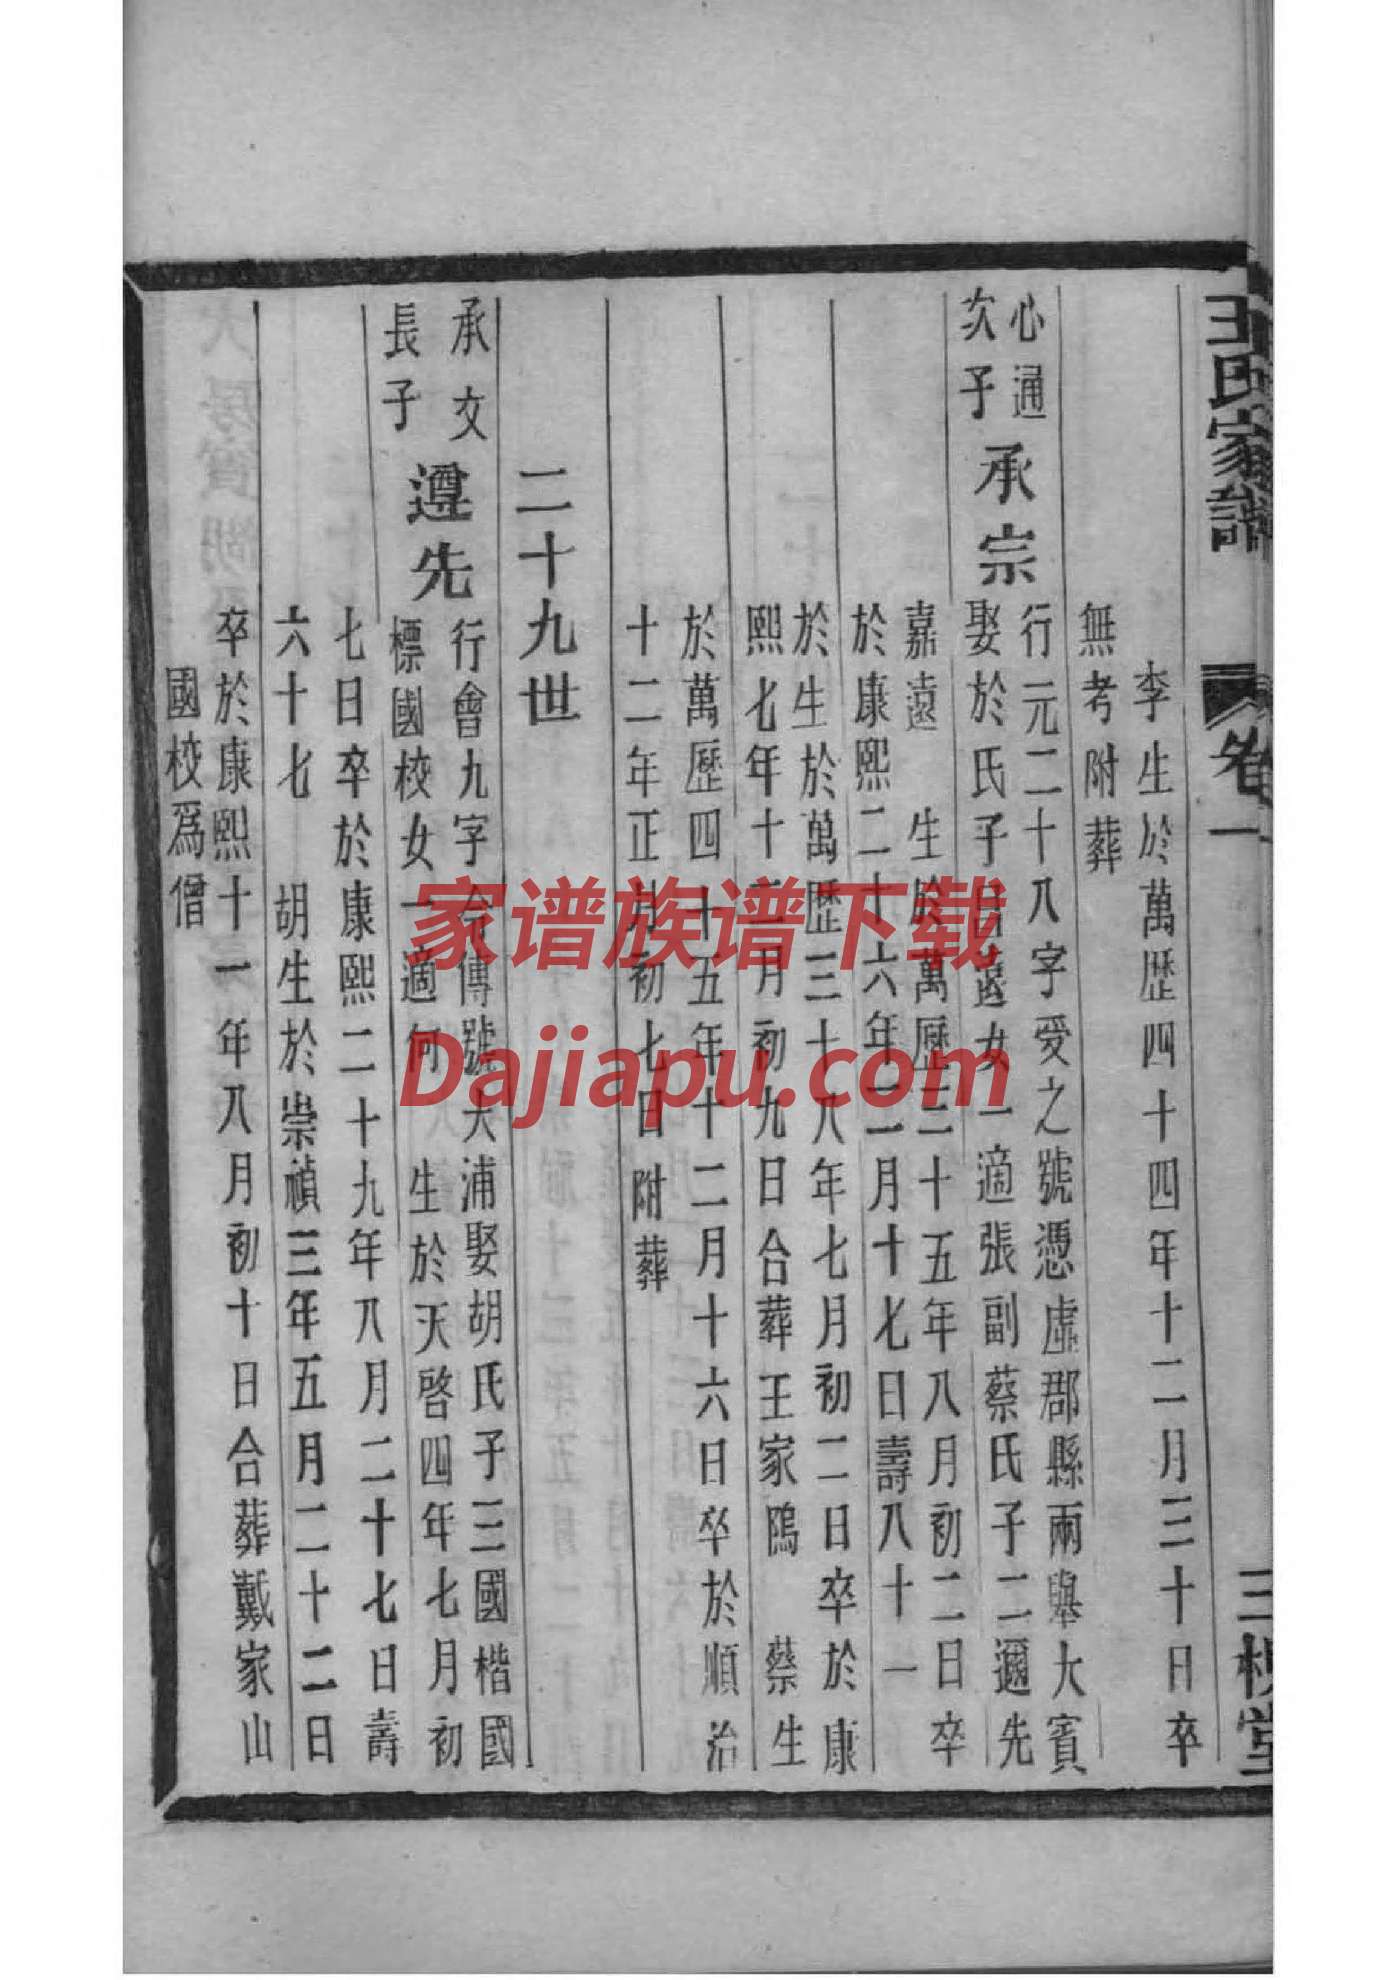 王氏家譜 卷一 三槐堂
李生於萬歷四十四年十二月三十日卒
無考附葬
心通
次子
承宗
行元二十八字受之號憑虛郡縣兩舉大賓
娶於氏子昌遠女一適張副蔡氏子二邇先
嘉遠 生於萬歷三十五年八月初二日卒
於康熙二十六年二月十七日壽八十一
於生於萬歷三十八年七月初二日卒於康
熙七年十二月初九日合葬王家隝 蔡生
於萬歷四十五年十二月十六日卒於順治
十二年正月初七日附葬
二十九世
承文
長子
遵先
行會九字令傳號大浦娶胡氏子三國楷國
標國校女一適何 生於天啓四年七月初
七日卒於康熙二十九年八月二十七日壽
六十七 胡生於崇禎三年五月二十二日
卒於康熙十一年八月初十日合葬戴家山
國校爲僧
家谱族谱下载
Dajiapu.com